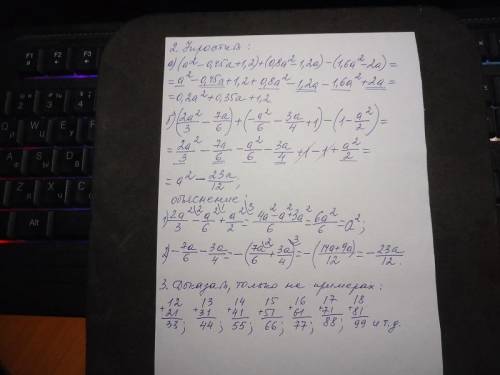 2. Упростить:
а) (a² - 0,45a + 1,2) + (0,8a² - 1,2a) - (1,6a² - 2a) =
= a² - 0,45a + 1,2 + 0,8a² - 1,2a - 1,6a² + 2a =
= 0,2a² + 0,35a + 1,2
б) (2a²/3 - 7a/6) + (-a²/6 - 3a/4 + 1) - (1 - a²/2) =
= 2a²/3 - 7a/6 - a²/6 - 3a/4 + 1 - 1 + a²/2 =
= a² - 23a/12;
объяснение:
1) 2a²/3 - a²/6 + a²/2 = (4a² - a² + 3a²)/6 = 6a²/6 = a²;
2) -7a/6 - 3a/4 = -(7a/6 + 3a/4) = -(14a + 9a)/12 = -23a/12.
3. Доказать, только на примерах:
12 13 14 15 16 17 18
+21 +31 +41 +51 +61 +71 +81
33; 44; 55; 66; 77; 88; 99 и т.д.